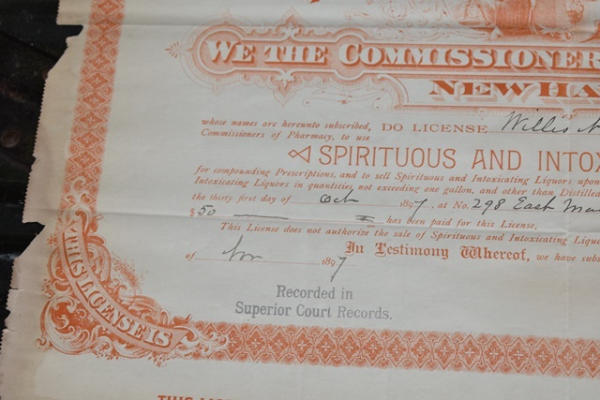 WE THE COMMISSIONER
NEW HA
whose names are hereunto subscribed, DO LICENSE Willis N
Commissioners of Pharmacy, to use
SPIRITUOUS AND INTOX
for compounding Prescriptions, and to sell Spirituous and Intoxicating Liquors upon
Intoxicating Liquors in quantities, not exceeding one gallon, and other than Distilled
the thirty first day of Oct 1897, at No. 298 East Ma
$ 50 has been paid for this License.
This License does not authorize the sale of Spirituous and Intoxicating Liquo
In Testimony Whereof, we have subs
of Nov 1897
THIS LICENSE IS
Recorded in
Superior Court Records.
THIS L